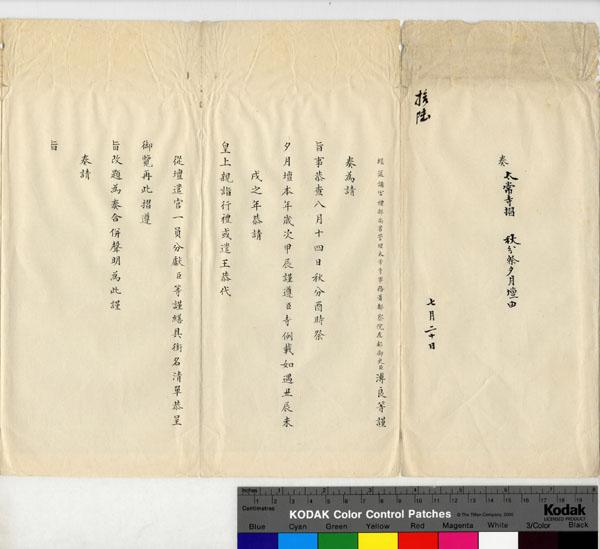 拾陸
奏 太常寺摺 秋分祭夕月壇由
七月二十日
經筵講官禮部尚書管理太常寺事務署都察院左都御史臣溥良等謹
奏為請
旨事恭查八月十四日秋分酉時祭
夕月壇本年歲次甲辰謹遵臣寺例載如遇丑辰未
戌之年恭請
皇上親詣行禮或遣王恭代
從壇遣官一員分獻臣等謹繕具銜名清單恭呈
御覽再此摺遵
旨改題為奏合併聲明為此謹
奏請
旨
Inches 1 2 3 4 5 6 7 8
Centimetres 1 2 3 4 5 6 7 8 9 10 11 12 13 14 15 16 17 18 19
KODAK Color Control Patches © The Tiffen Company, 2000
Kodak
LICENSED PRODUCT
Blue Cyan Green Yellow Red Magenta White 3/Color Black